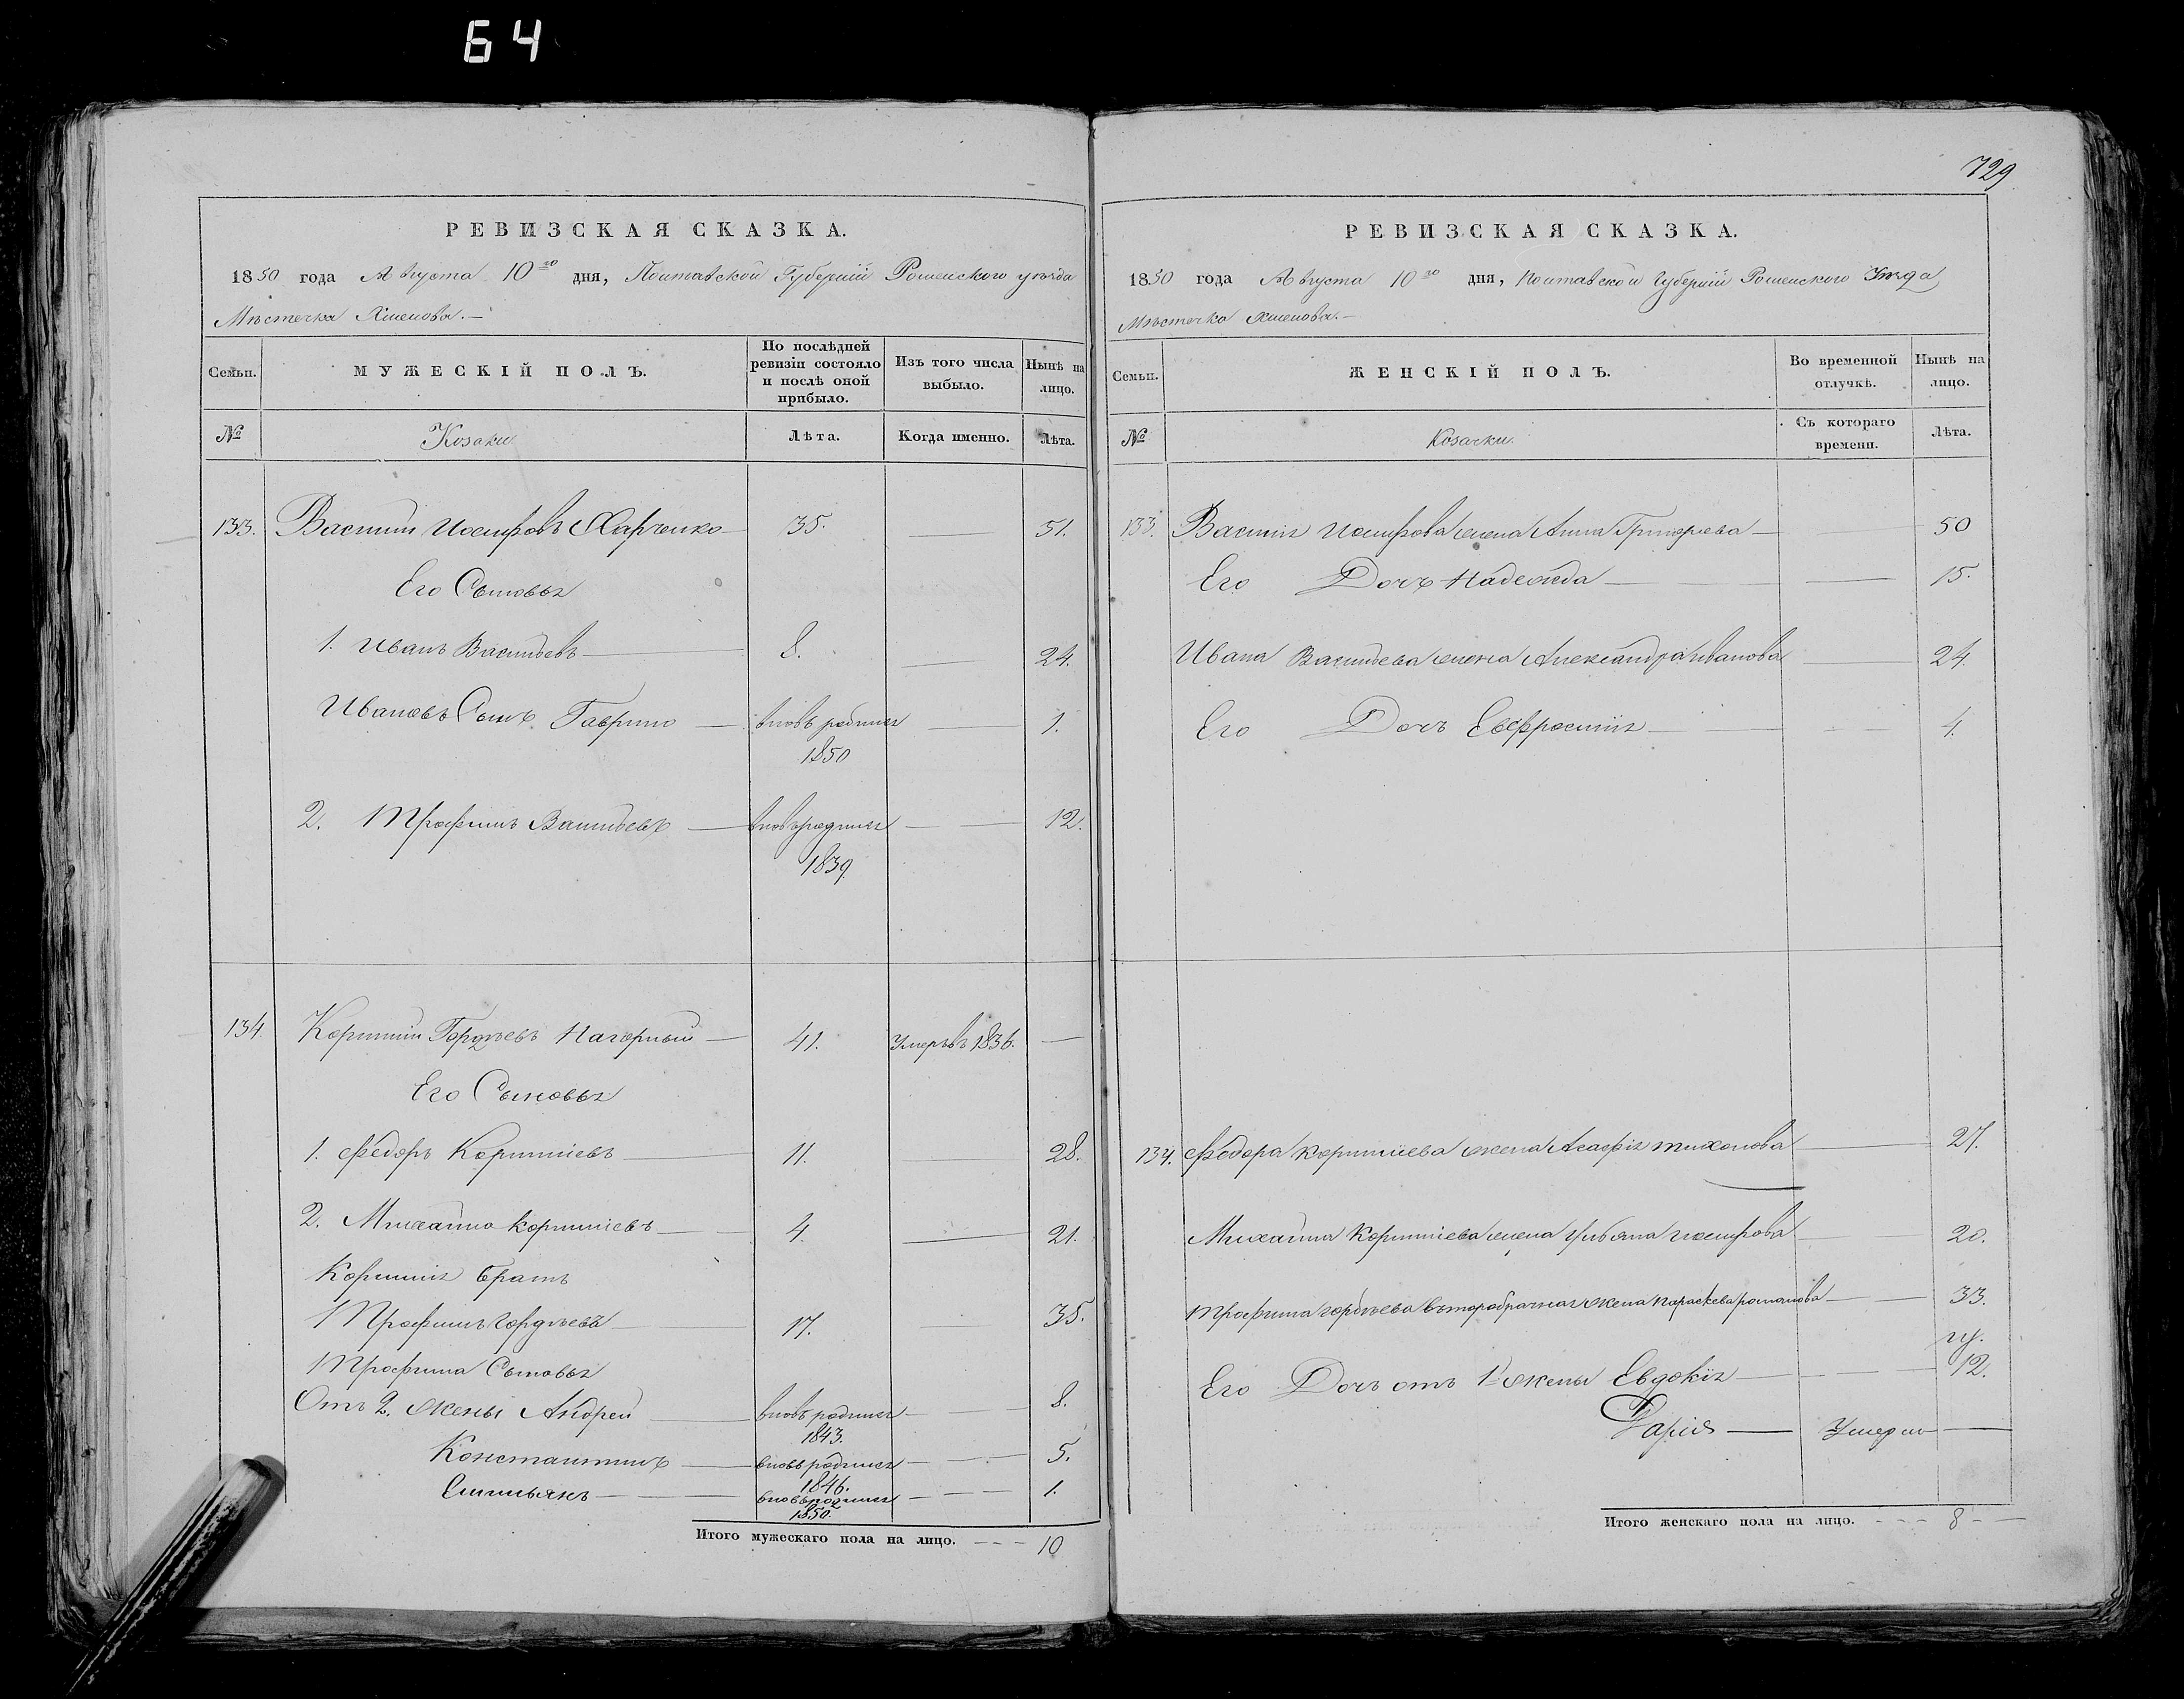 64
РЕВИЗСКАЯ СКАЗКА.
1850 года Августа 10го дня, Полтавской Губерніи Роменского уезда
Мѣстечка Хмелова.—
Семьи.
МУЖЕСКІЙ ПОЛЪ.
По послѣдней ревизіи состояло и послѣ оной прибыло.
Изъ того числа выбыло.
Нынѣ на лицо.
№
Козаки
Лѣта.
Когда именно.
Лѣта.
133. Василий Иосифовъ Харченко 35. — 51.
Его Сыновья
1. Иванъ Васильевъ — 8. — 24.
Ивановъ Сынъ Гаврило — вновь родился — 1.
1850
2. Трофимъ Васильевъ — вновь родился — 12.
1839
134. Корнилий Гордѣевъ Нагорный — 41. Умеръ въ 1836. —
Его Сыновья
1. Федоръ Корниліевъ — 11. 28.
2. Михайло Корниліевъ — 4. — 21.
Корнилія Братъ
Трофимъ Гордѣевъ — 17. 35.
Трофима Сыновья
Отъ 2. жены Андрей — вновь родился — 8.
1843.
Константинъ — вновь родился — 5.
1846.
Емильянъ — вновь родился — 1.
1850.
Итого мужескаго пола на лицо. --- 10
729
РЕВИЗСКАЯ СКАЗКА.
1850 года Августа 10го дня, Полтавской Губерніи Роменского Уезда
Мѣстечка Хмелова.—
Семьи.
ЖЕНСКІЙ ПОЛЪ.
Во временной отлучкѣ.
Нынѣ на лицо.
№
Козачки
Съ котораго времени.
Лѣта.
133. Василія Иосифова жена Анна Григорьева — 50
Его Дочь Надежда — 15.
Ивана Васильева жена Александра Иванова — 24.
Его Дочь Евфросинія — 4.
134. Федора Корниліева жена Агафія Тихонова — 27.
Михайла Корниліева жена Ульяна Иосифова 20.
Трофима Гордѣева второбрачная жена Параскева Романова — 33.
Его Дочь отъ 1й жены Евдокія — 12.
Дарія — Умерла —
Итого женскаго пола на лицо. --- 8 --